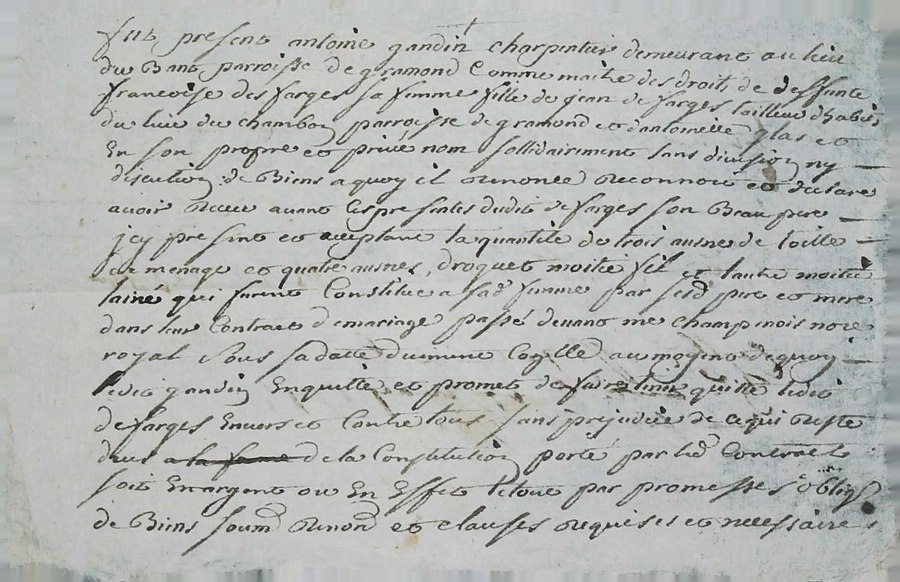 fut present antoine gandin charpentier demeurant au lieu
du Bant parroisse de gramond Comme maitre des droits de deffunte
francoise des farges sa femme fille de jean de farges tailleur d'habis
du lieu du chambon parroisse de gramond et d'antoinette glas et
En son propre et privé nom sollidairement sans division ny
discution de Biens a quoy il renonce reconnoit et declare
avoir receu avant ces presentes dudit de farges son Beau pere
jcy present et acceptant la quantite de trois ausne de toille
de menage et quatre ausnes, droguet moitié fil et lautre moitié
laine qui furent Constitue a sad femme par sesd pere et mere
dans leur Contract de mariage passé devant me champinois nore
royal sous sa datte dument Congllé au moyent de quoy
ledit gandin En quitte et promet de faire tenir quitte ledit
de farges Envers et Contre tous sans prejudice de ce qui reste
deus a la femme de la Constitution porté par led Contract
soit En argent ou En Effet le tout par promesses oblign
de Biens soumd renond et clauses requises et necessaires